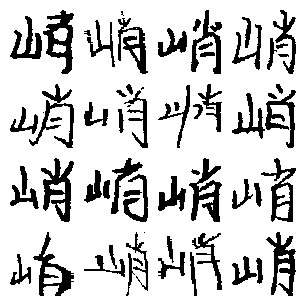 峭峭峭峭
峭峭峭峭
峭峭峭峭
峭峭峭峭